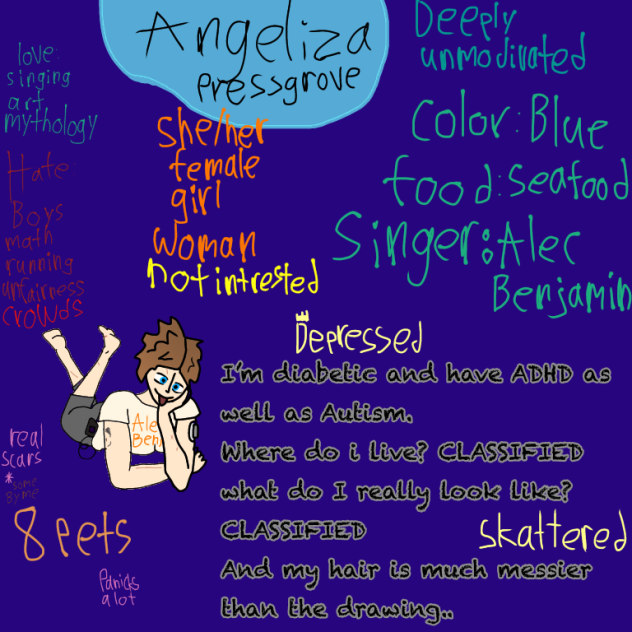 Angeliza
Pressgrove
love:
singing
art
mythology
Hate
Boys
math
running
unfairness
crowds
She/her
female
girl
woman
not intrested
Deeply
unmodivated
Color: Blue
food: Seafood
Singer: Alec
Benjamin
Depressed
I'm diabetic and have ADHD as
well as Autism.
Where do i live? CLASSIFIED
what do I really look like?
CLASSIFIED
And my hair is much messier
than the drawing..
Alec
Benj
real
scars
*some
By me
8 Pets
Panicks
a lot
skattered